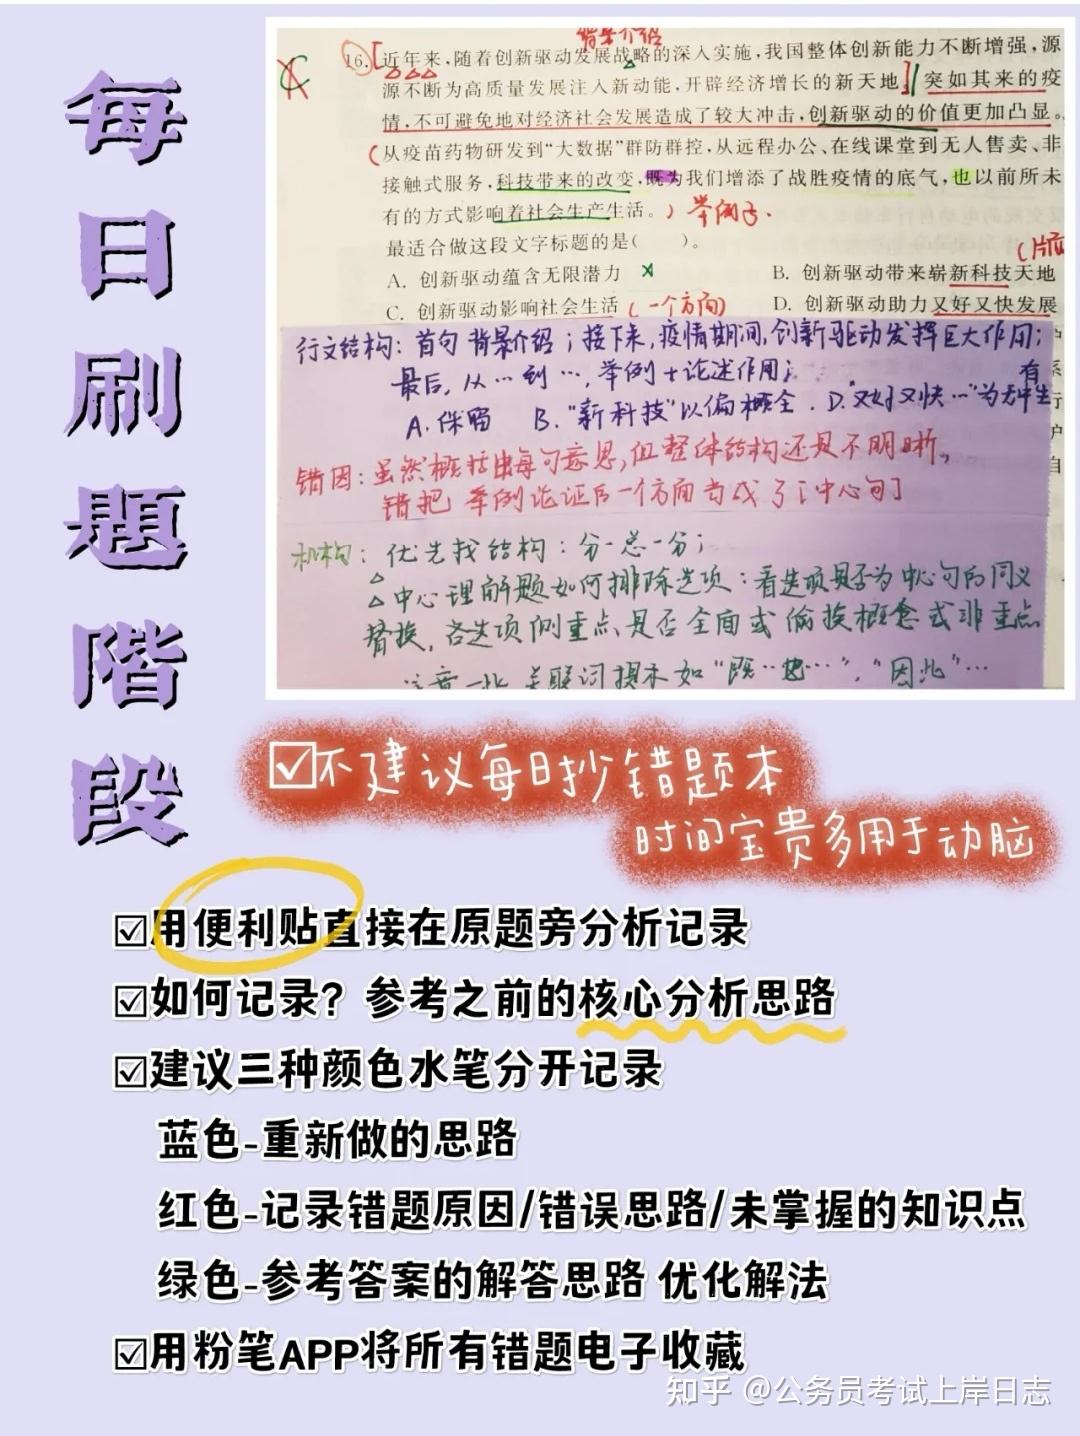 每日刷題階段
背景介绍
16. 近年来,随着创新驱动发展战略的深入实施,我国整体创新能力不断增强,源
源不断为高质量发展注入新动能,开辟经济增长的新天地。突如其来的疫
情,不可避免地对经济社会发展造成了较大冲击,创新驱动的价值更加凸显。
从疫苗药物研发到“大数据”群防群控,从远程办公、在线课堂到无人售卖、非
接触式服务,科技带来的改变,既为我们增添了战胜疫情的底气,也以前所未
有的方式影响着社会生产生活。)举例子.
最适合做这段文字标题的是( )。
A. 创新驱动蕴含无限潜力 B. 创新驱动带来崭新科技天地
C. 创新驱动影响社会生活 (一个方面) D. 创新驱动助力又好又快发展
行文结构: 首句 背景介绍;接下来,疫情期间,创新驱动发挥巨大作用;
最后,从…到…,举例+论述作用;
A. 保留 B.“新科技”以偏概全. D.“又好又快…”为无中生有
错因: 虽然概括出每句意思,但整体结构还是不明晰,
错把 举例论证后一个方面当成了[中心句]
机构: 优先找结构: 分-总-分;
△中心理解题如何排除选项: 看选项是否为中心句的同义
替换,各选项侧重点是否全面或偷换概念或非重点
注意一些关联词提示如“既…也…”,“因此”…
☑不建议每日抄错题本
时间宝贵多用于动脑
☑用便利贴直接在原题旁分析记录
☑如何记录?参考之前的核心分析思路
☑建议三种颜色水笔分开记录
蓝色-重新做的思路
红色-记录错题原因/错误思路/未掌握的知识点
绿色-参考答案的解答思路 优化解法
☑用粉笔APP将所有错题电子收藏
知乎 @公务员考试上岸日志